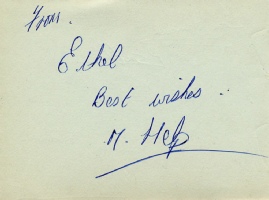 From.
Ethel
Best wishes.
M. Help